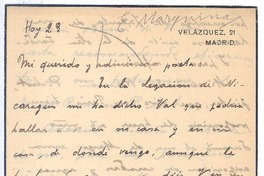 E. Marquina
Hoy 23
VELÁZQUEZ, 21
MADRID.
Mi querido y admirado poeta
En la Legacion de Ni-
caragua me ha dicho Val que podria
hallar en su casa y en su
casa, d donde vengo, aunque le